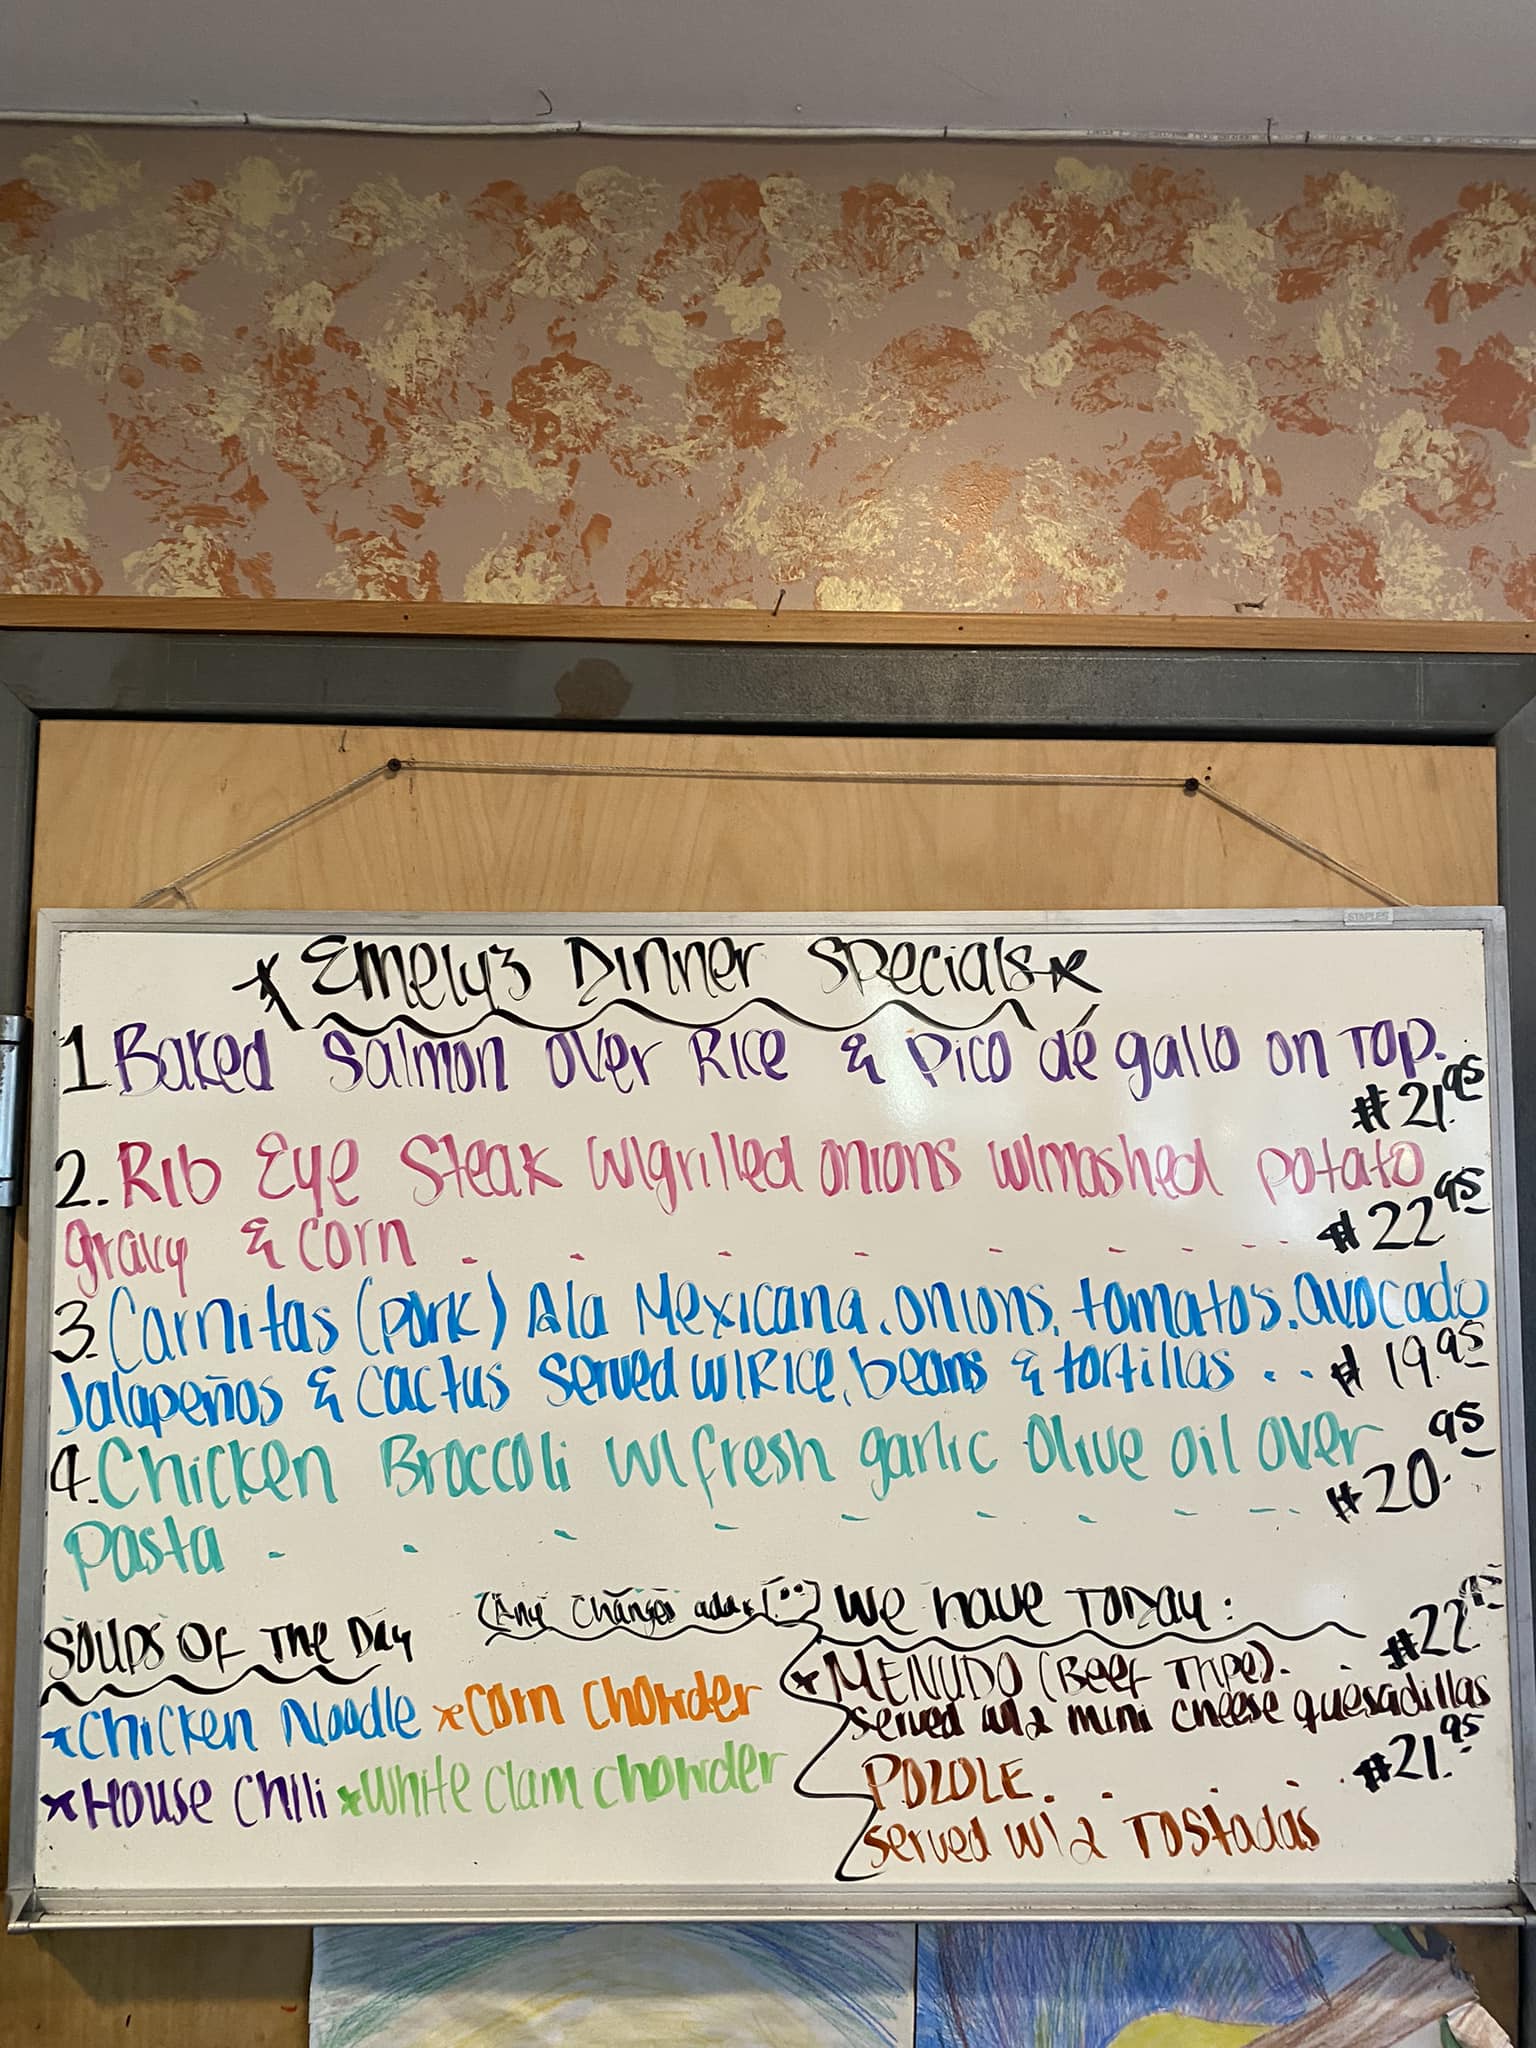 STAPLES
*Emelyz Dinner Specials*
1 Baked Salmon over Rice & Pico de gallo on Top.
$21.95
2. Rib Eye Steak w/grilled onions w/mashed potato
gravy & corn . . . . . . . . . $22.95
3. Carnitas (Pork) Ala Mexicana, onions, tomatos, avocado
Jalapeños & cactus served w/Rice, beans & tortillas . . . $19.95
4. Chicken Broccoli w/fresh garlic Olive oil over
Pasta . . . . . . . . . . $20.95
Soups Of The Day
(Any changes add $)
*Chicken Noodle *Corn Chowder
*House Chili *White Clam Chowder
We have Today:
*MENUDO (Beef Tripe). . $22.95
served w/2 mini cheese quesadillas
POZOLE. . . . . $21.95
served w/2 Tostadas